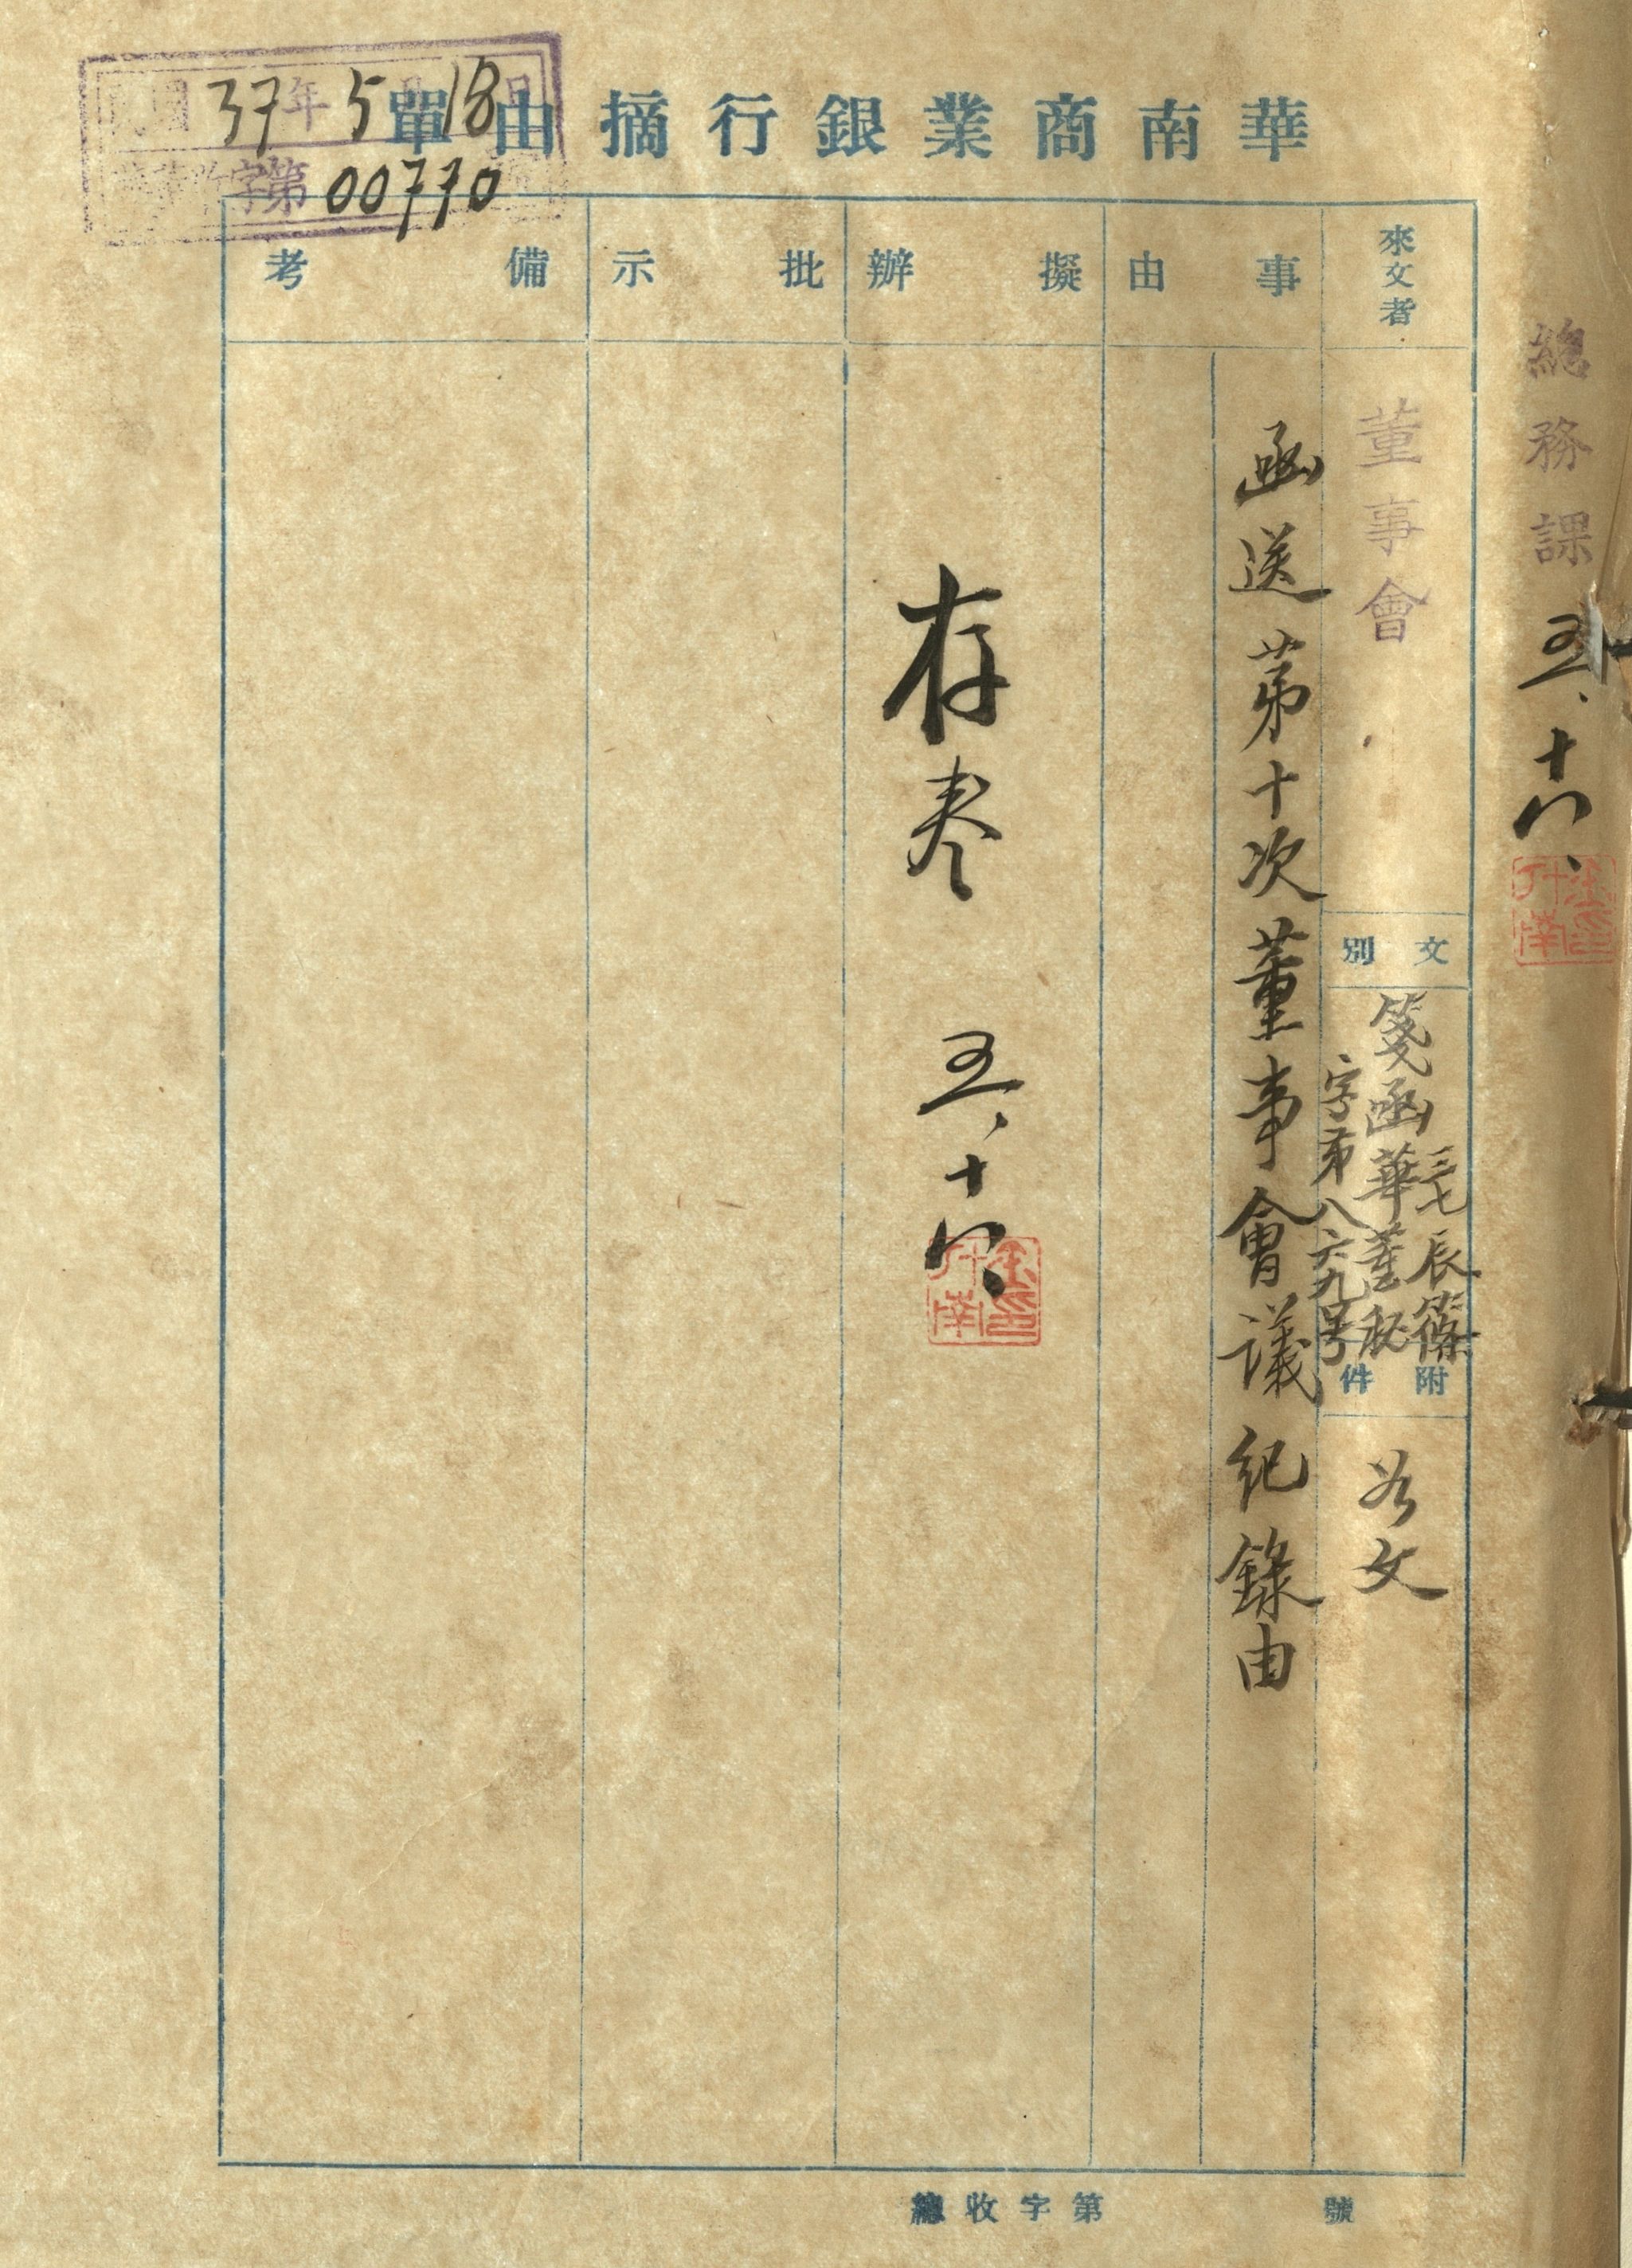 華南商業銀行摘由單
民國37年5月18日
字第00770
總務課
五、十八、
來文者
董事會
文別
箋函
三七辰篠
華董秘
字第八六九号
附件
如文
事由
函送第十次董事會議紀錄由
擬辦
存卷
五、十八、
批示
備考
總收字第
號